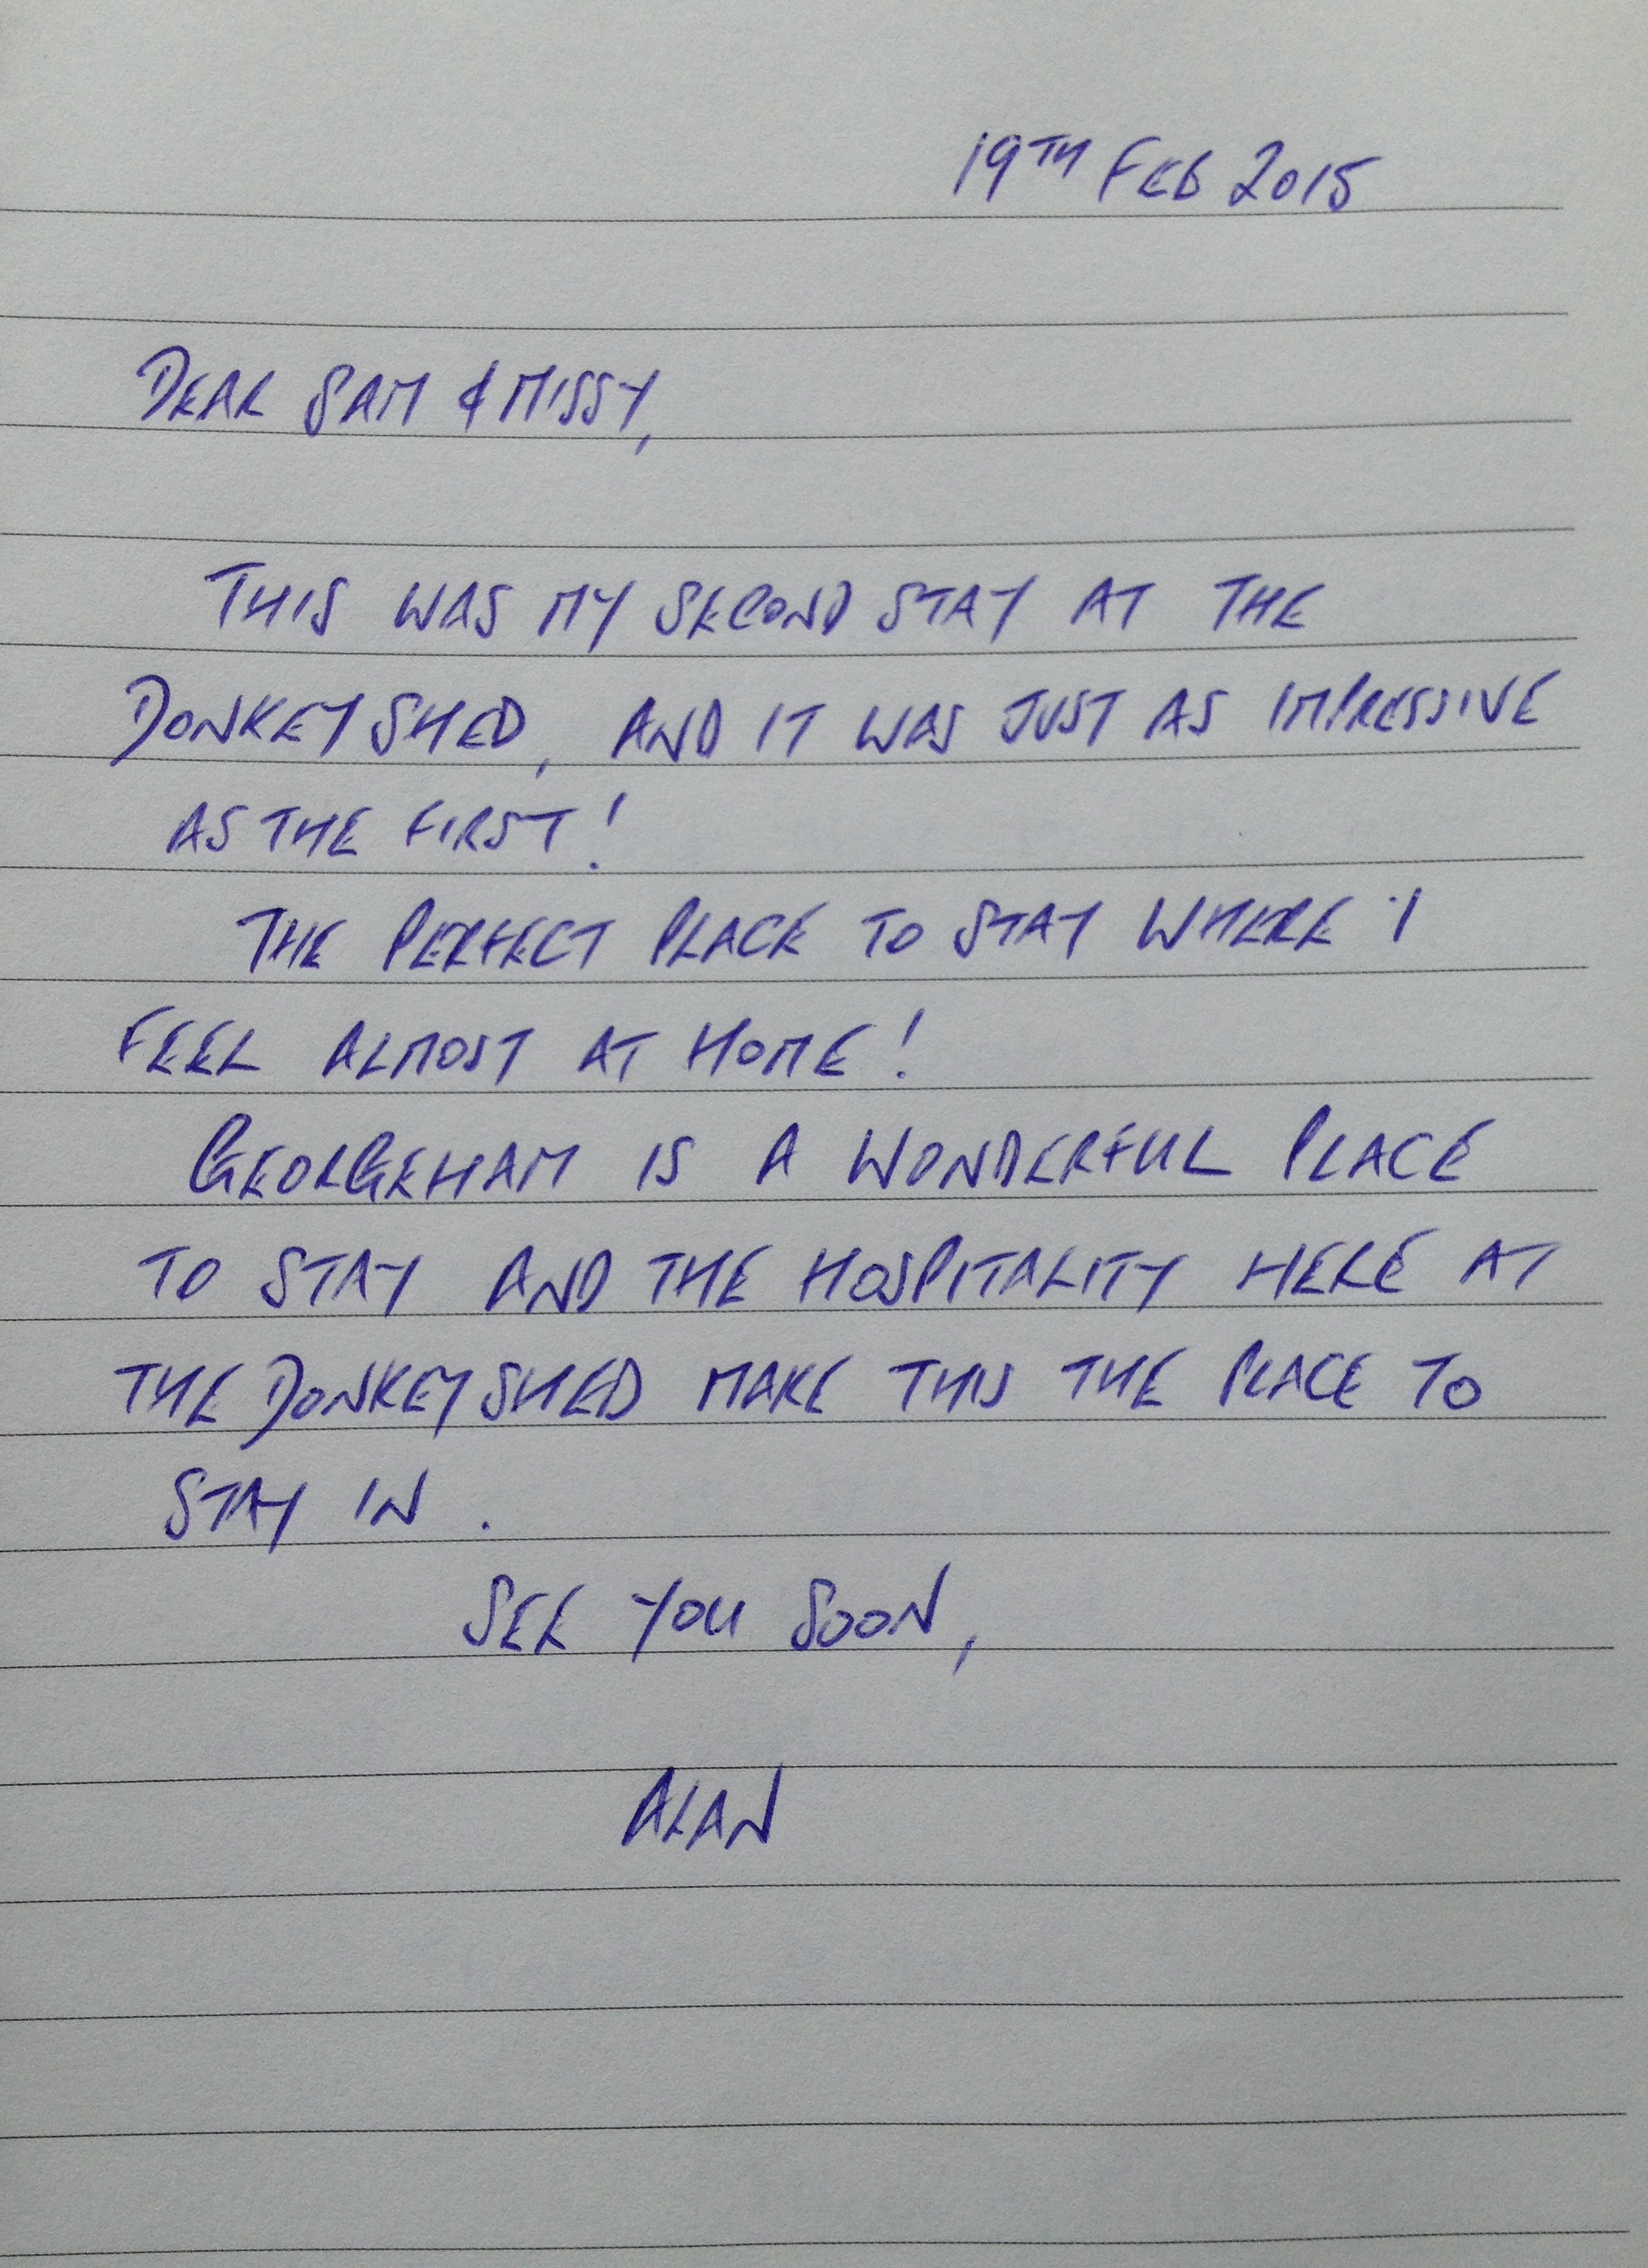 19TH FEB 2015
DEAR SAM & MISSY,
THIS WAS MY SECOND STAY AT THE
DONKEY SHED, AND IT WAS JUST AS IMPRESSIVE
AS THE FIRST!
THE PERFECT PLACE TO STAY WHERE I
FEEL ALMOST AT HOME!
GEORGEHAM IS A WONDERFUL PLACE
TO STAY AND THE HOSPITALITY HERE AT
THE DONKEY SHED MAKE THIS THE PLACE TO
STAY IN.
SEE YOU SOON,
ALAN